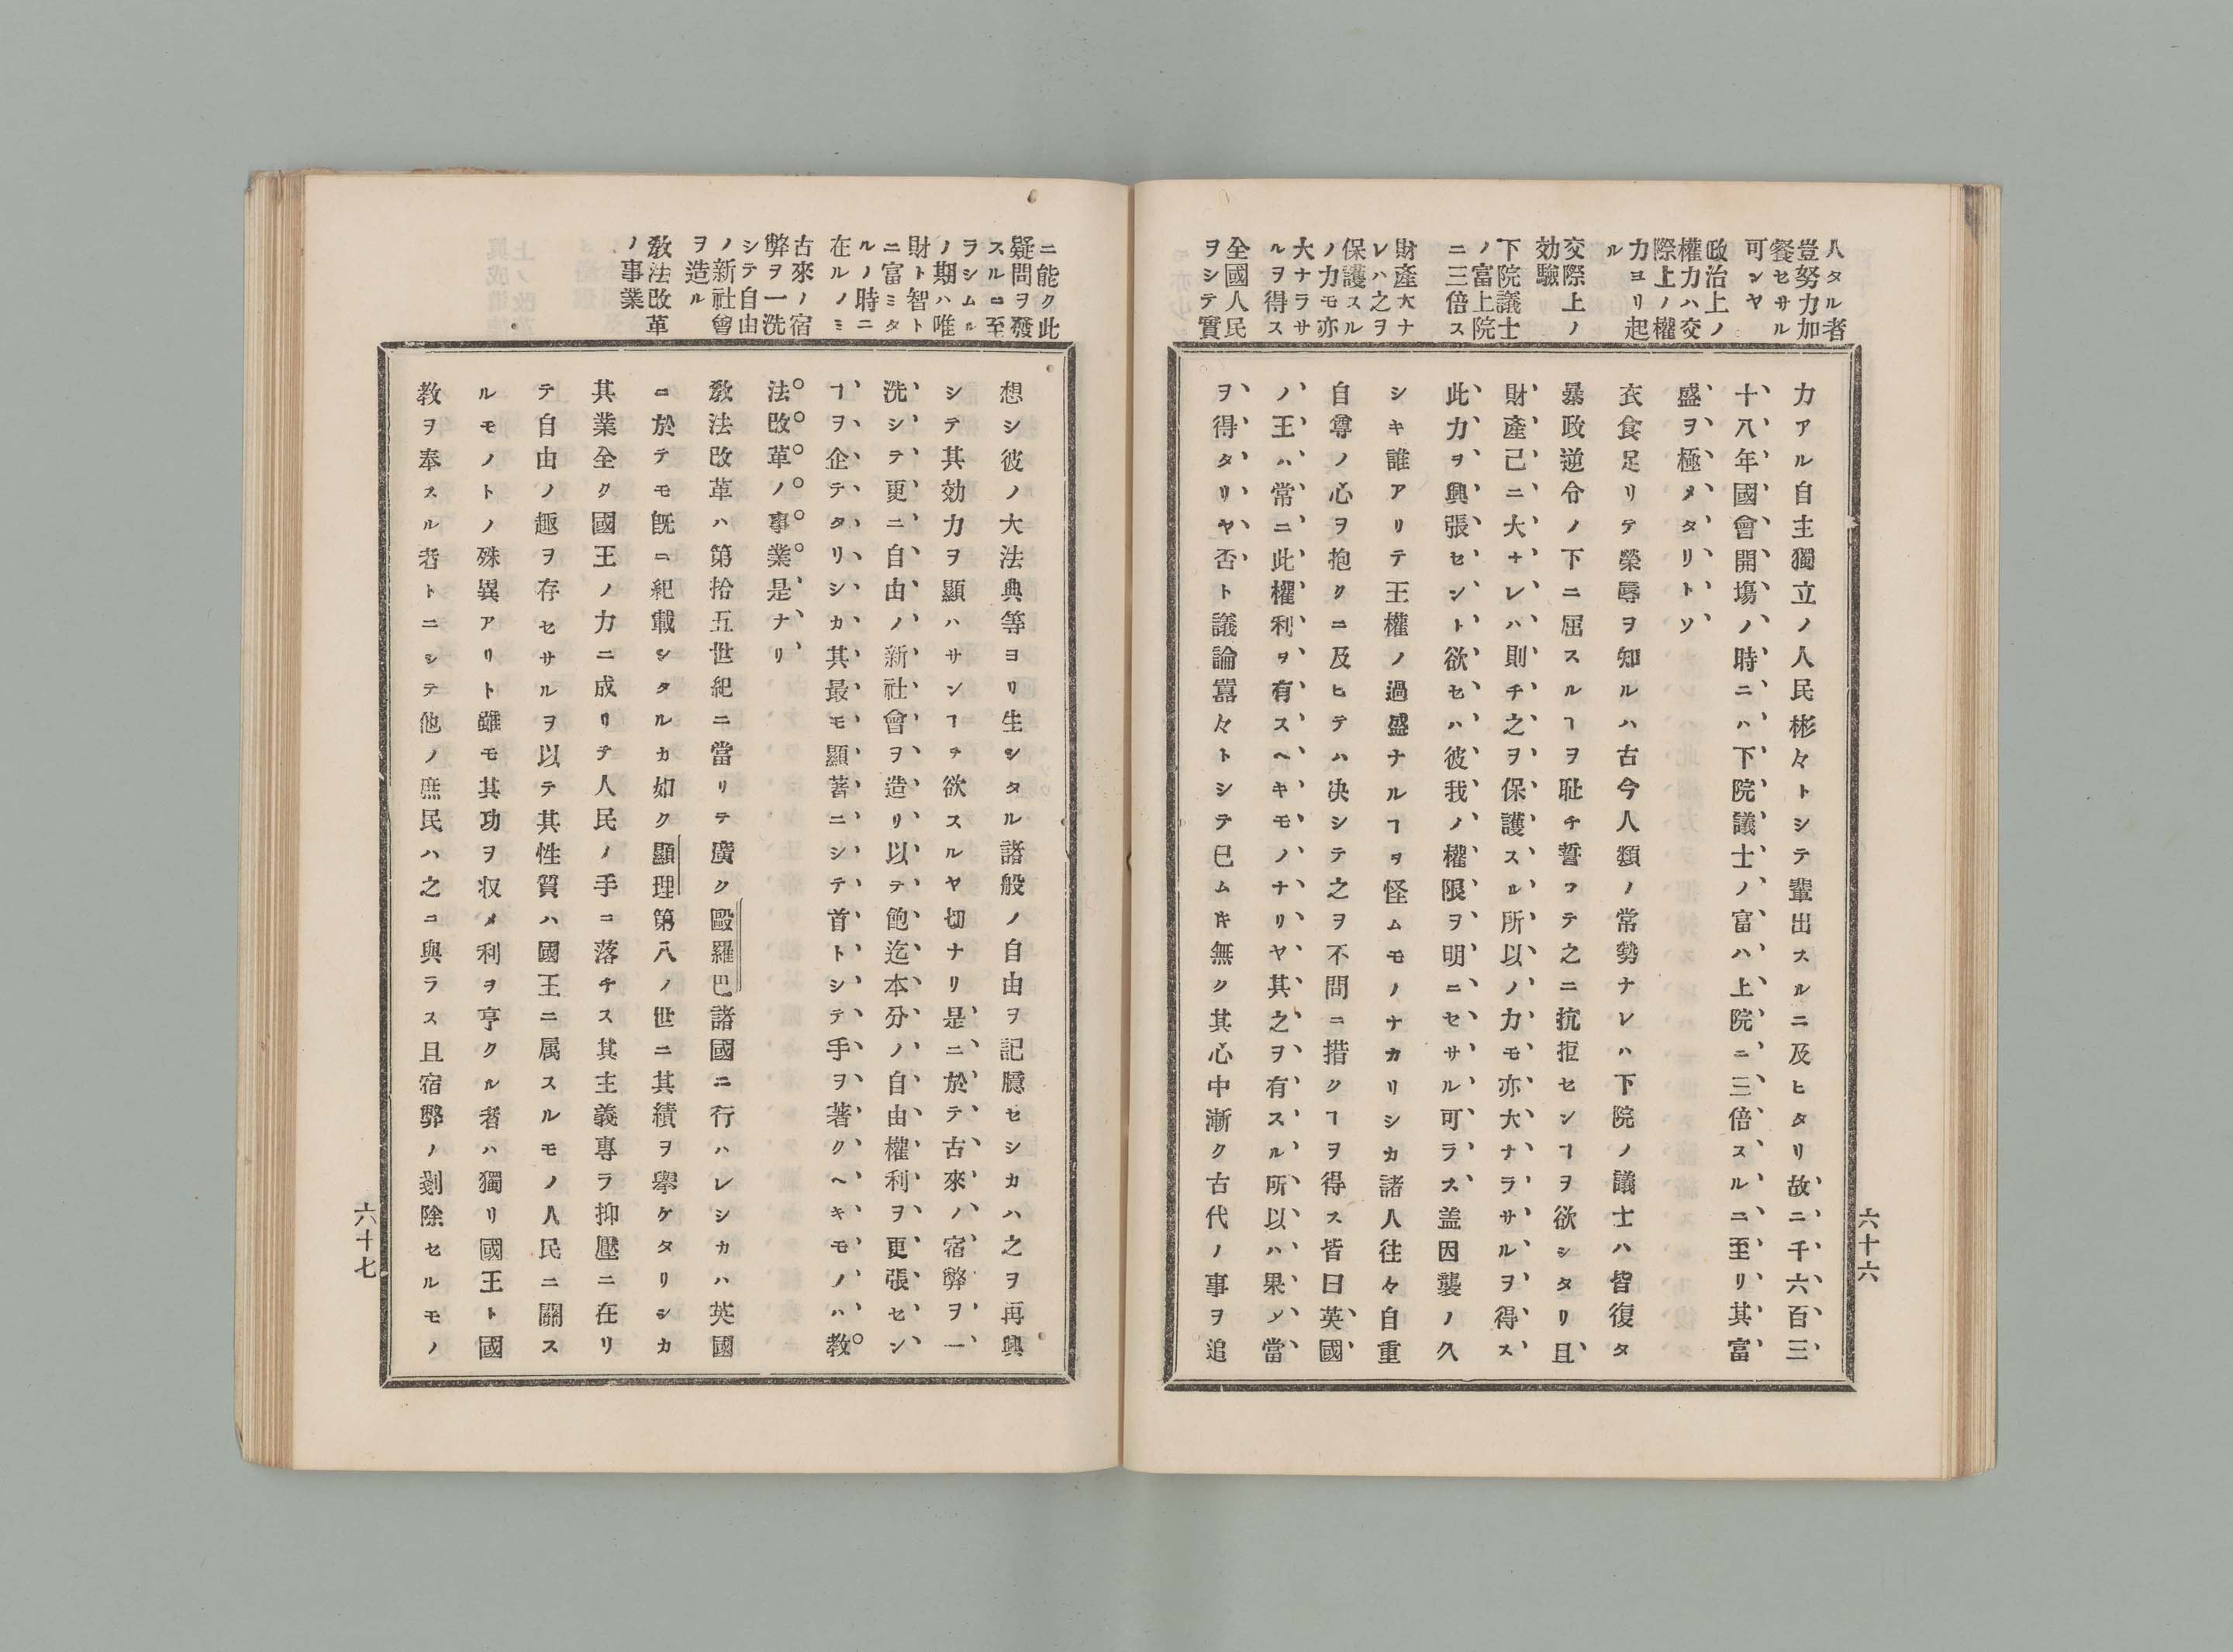 人タル者
豈努力加
餐セサル
可ンヤ
政治上ノ
權力ハ交
際上ノ權
力ヨリ起
ル
交際上ノ
効驗
下院議士
ノ富上院
ニ三倍ス
財產大ナ
レハ之ヲ
保護スル
ノ力モ亦
大ナラサ
ルヲ得ス
全國人民
ヲシテ實
力アル自主獨立ノ人民彬々トシテ輩出スルニ及ヒタリ故ニ千六百三
十八年國會開塲ノ時ニハ下院議士ノ富ハ上院ニ三倍スルニ至リ其富
盛ヲ極メタリトソ
衣食足リテ榮辱ヲ知ルハ古今人類ノ常勢ナレハ下院ノ議士ハ皆復タ
暴政逆令ノ下ニ屈スルヿヲ耻チ誓フテ之ニ抗拒センヿヲ欲シタリ且
財產已ニ大ナレハ則チ之ヲ保護スル所以ノ力モ亦大ナラサルヲ得ス
此力ヲ興張セント欲セハ彼我ノ權限ヲ明ニセサル可ラス盖因襲ノ久
シキ誰アリテ王權ノ過盛ナルヿヲ怪ムモノナカリシカ諸人往々自重
自尊ノ心ヲ抱クニ及ヒテハ决シテ之ヲ不問ニ措クヿヲ得ス皆曰英國
ノ王ハ常ニ此權利ヲ有スヘキモノナリヤ其之ヲ有スル所以ハ果シ當
ヲ得タリヤ否ト議論囂々トシテ已ムキ無ク其心中漸ク古代ノ事ヲ追
六十六
ニ能ク此
疑問ヲ發
スルニ至
ラシムル
ノ期ハ唯
財ト智ト
ニ富ミタ
ルノ時ニ
在ルノミ
古來ノ宿
弊ヲ一洗
シテ自由
ノ新社會
ヲ造ル
敎法改革
ノ事業
想シ彼ノ大法典等ヨリ生シタル諸般ノ自由ヲ記臆セシカハ之ヲ再興
シテ其効力ヲ顯ハサンヿヲ欲スルヤ切ナリ是ニ於テ古來ノ宿弊ヲ一
洗シテ更ニ自由ノ新社會ヲ造リ以テ飽迄本分ノ自由權利ヲ更張セン
ヿヲ企テタリシカ其最モ顯著ニシテ首トシテ手ヲ著クヘキモノハ敎
法改革ノ事業是ナリ
敎法改革ハ第拾五世紀ニ當リテ廣ク歐羅巴諸國ニ行ハレシカハ英國
ニ於テモ旣ニ紀載シタルカ如ク顯理第八ノ世ニ其績ヲ擧ケタリシカ
其業全ク國王ノ力ニ成リテ人民ノ手ニ落チス其主義專ラ抑壓ニ在リ
テ自由ノ趣ヲ存セサルヲ以テ其性質ハ國王ニ属スルモノ人民ニ關ス
ルモノトノ殊異アリト雖モ其功ヲ収メ利ヲ亨クル者ハ獨リ國王ト國
敎ヲ奉スル者トニシテ他ノ庶民ハ之ニ與ラス且宿弊ノ剗除セルモノ
六十七